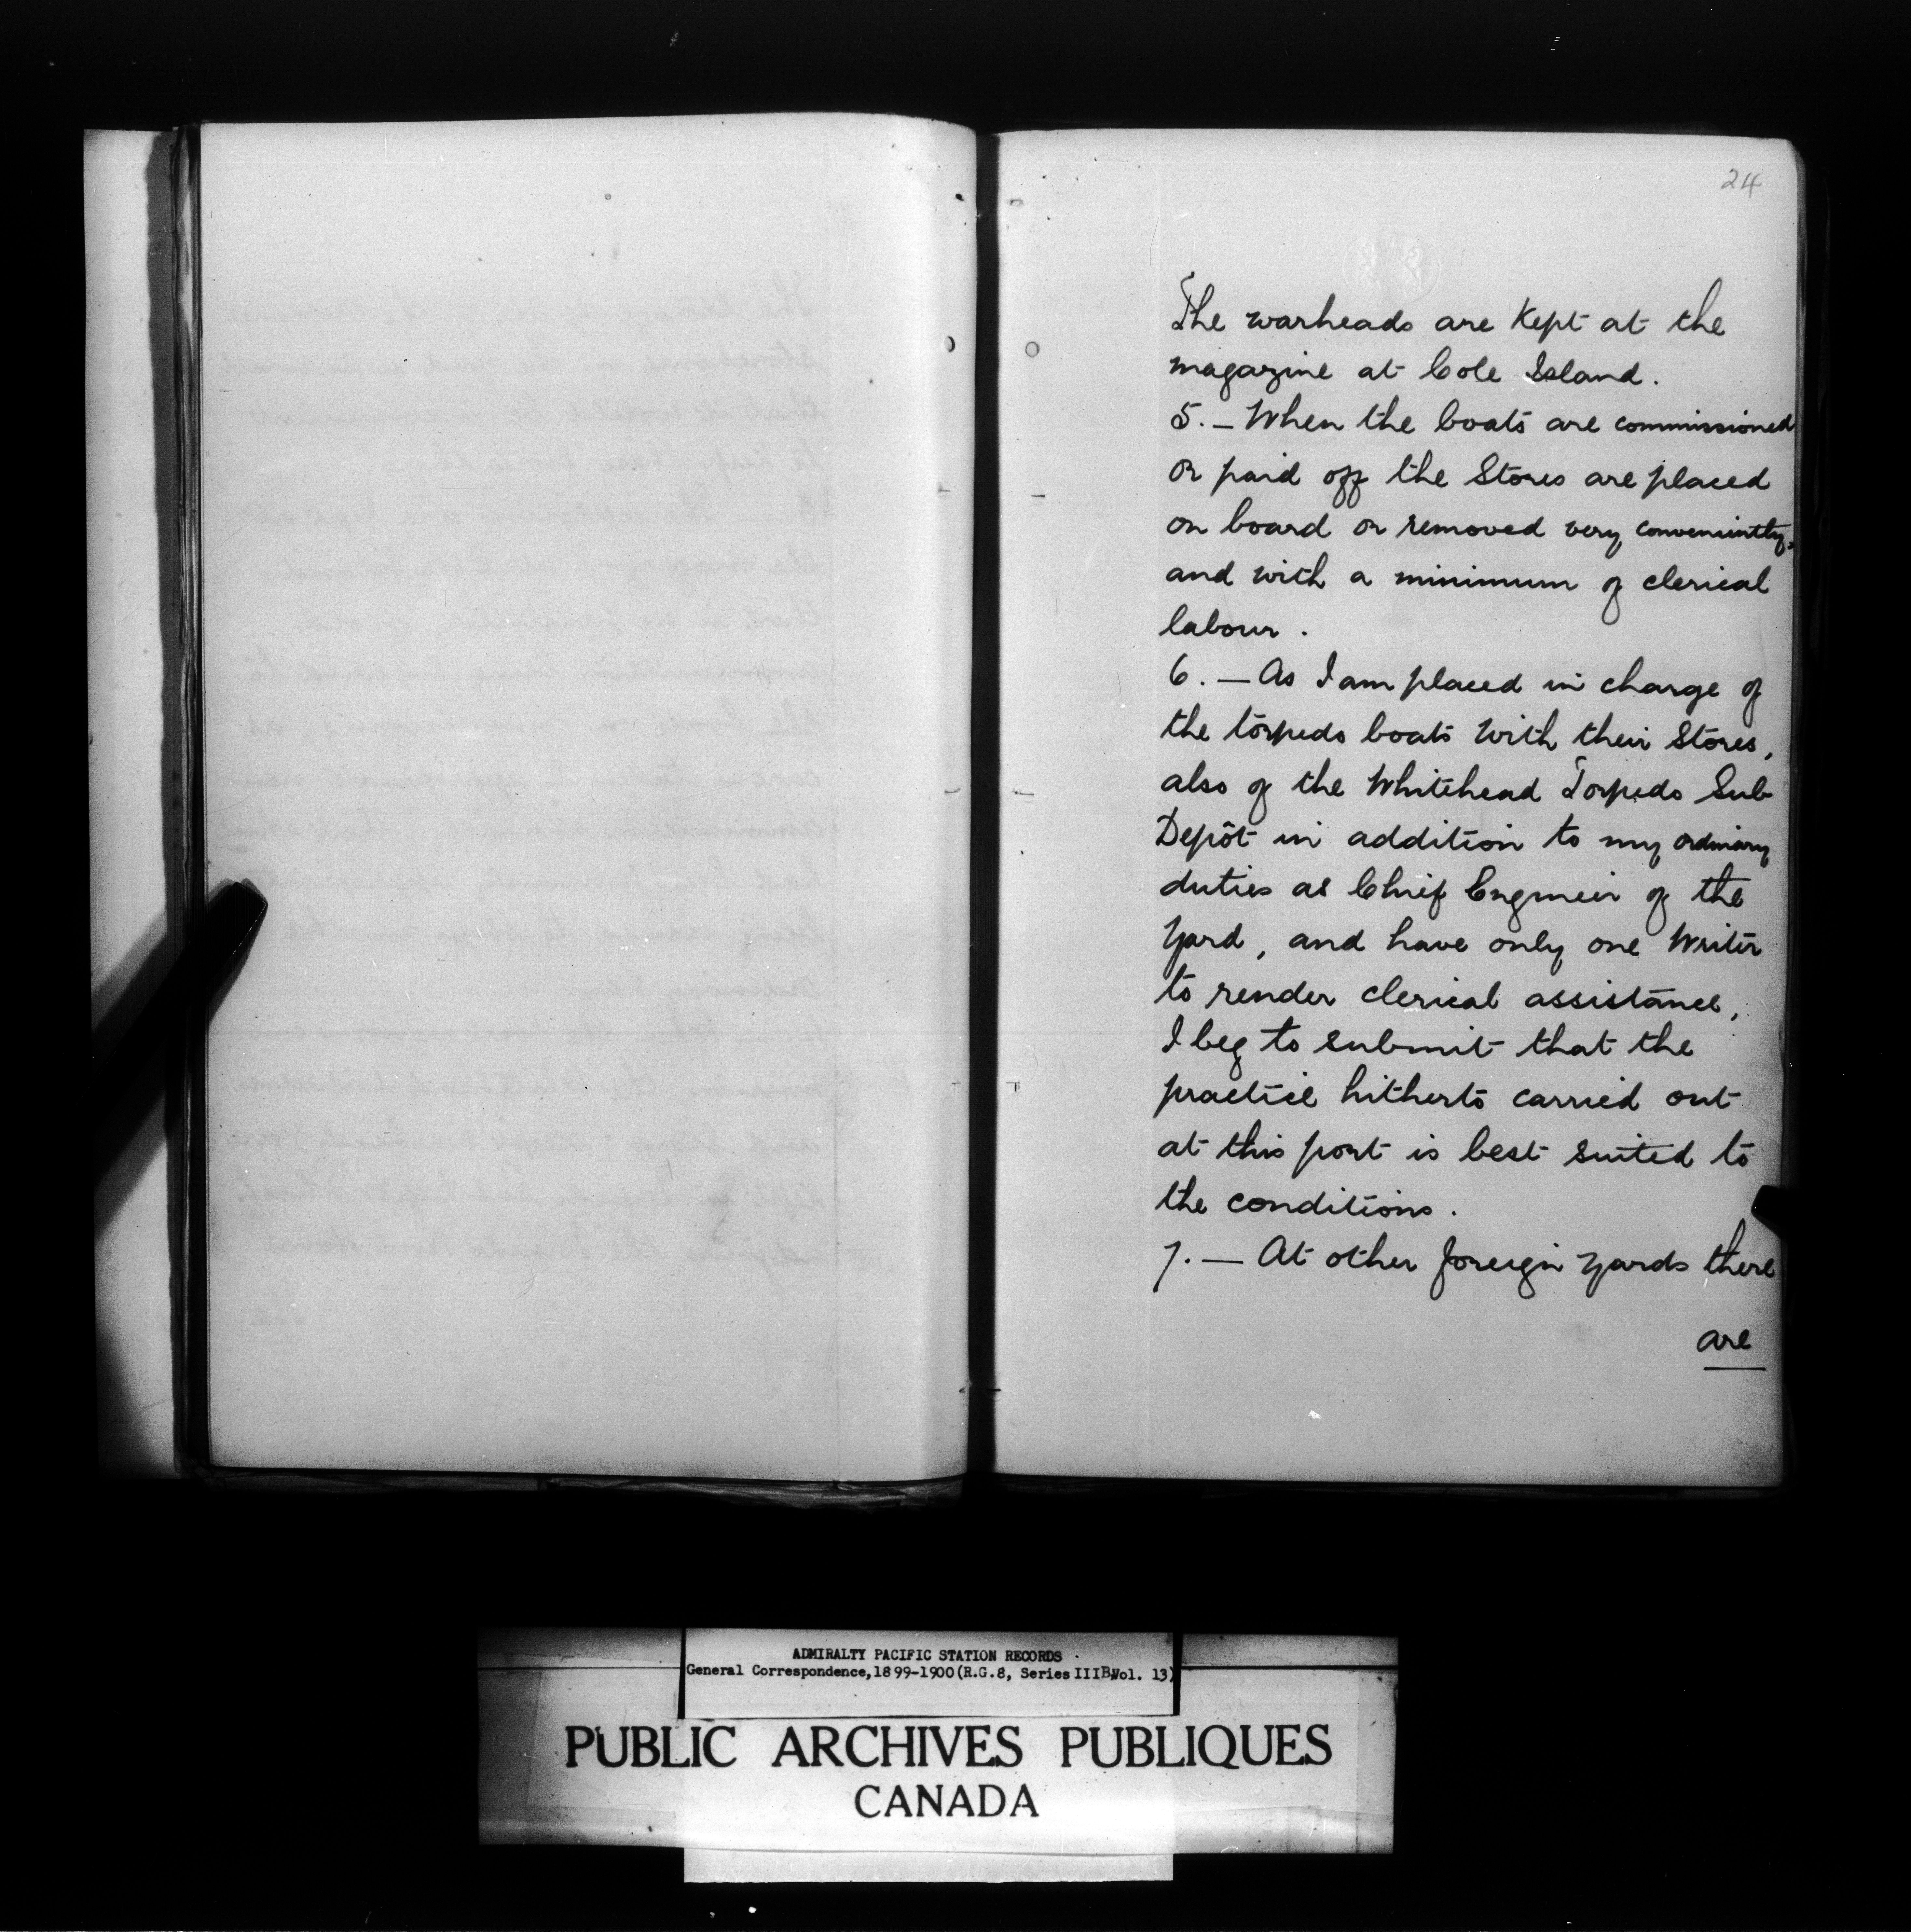 24
The warheads are kept at the
magazine at Cole Island.
5. — When the boats are commissioned
or paid off the Stores are placed
on board or removed very conveniently,
and with a minimum of clerical
labour.
6. — As I am placed in charge of
the torpedo boats with their Stores,
also of the Whitehead Torpedo Sub
Depôt in addition to my ordinary
duties as Chief Engineer of the
Yard, and have only one Writer
to render clerical assistance,
I beg to submit that the
practice hitherto carried out
at this port is best suited to
the conditions.
7. — At other foreign yards there
are
ADMIRALTY PACIFIC STATION RECORDS
General Correspondence, 1899-1900 (R.G.8, Series IIIB, Vol. 13)
PUBLIC ARCHIVES PUBLIQUES
CANADA